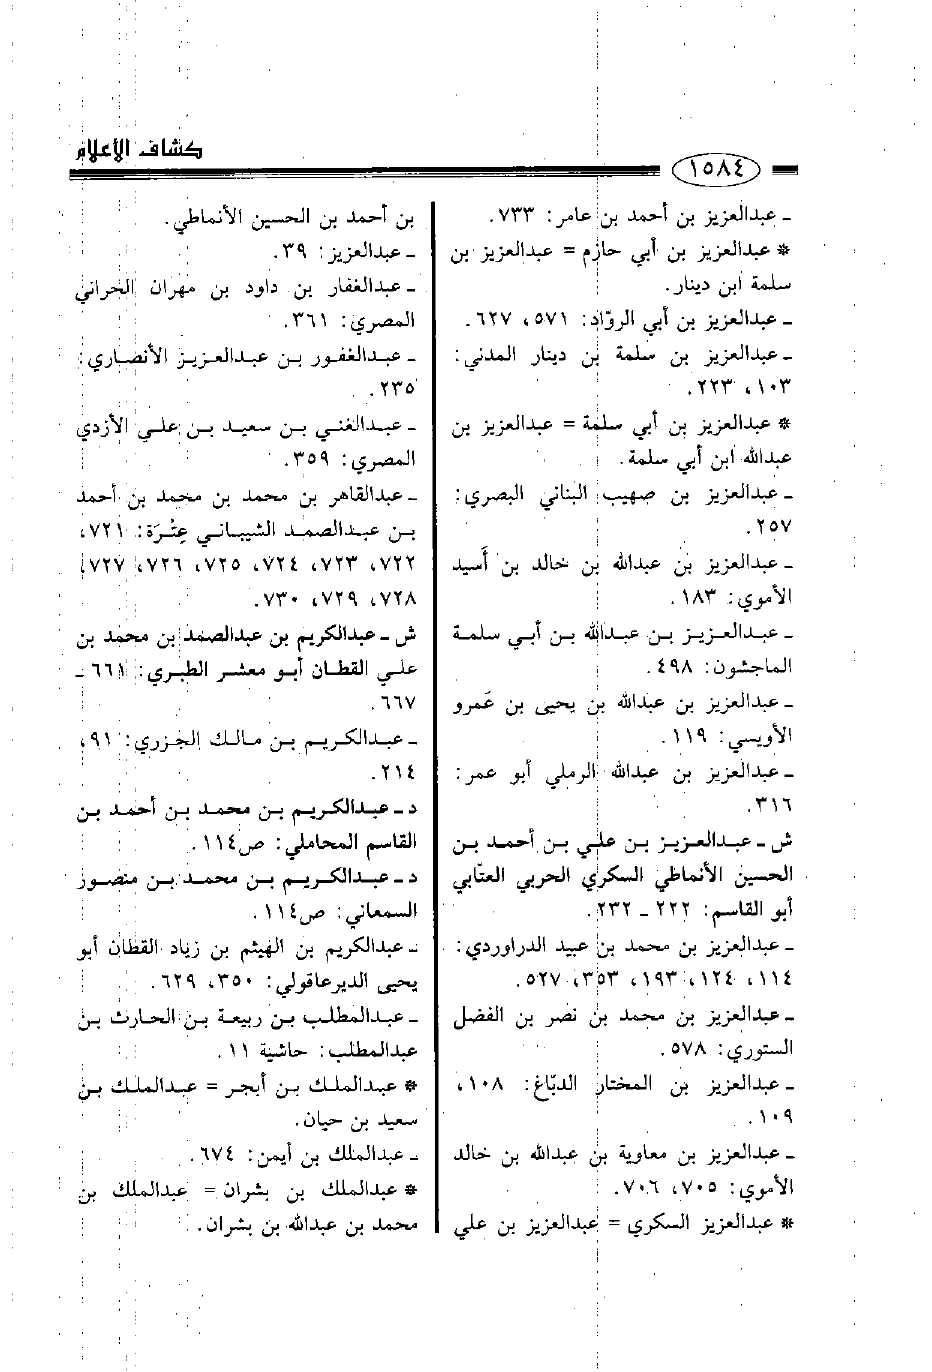 كشاف الأعلام
١٥٨٤
ـ عبدالعزيز بن أحمد بن عامر: ٧٣٣.
* عبدالعزيز بن أبي حازم = عبدالعزيز بن
سلمة ابن دينار.
ـ عبدالعزيز بن أبي الروّاد: ٥٧١، ٦٢٧.
ـ عبدالعزيز بن سلمة بن دينار المدني:
١٠٣، ٢٢٣.
* عبدالعزيز بن أبي سلمة = عبدالعزيز بن
عبدالله ابن أبي سلمة.
ـ عبدالعزيز بن صهيب البناني البصري:
٢٥٧.
ـ عبدالعزيز بن عبدالله بن خالد بن أَسيد
الأموي: ١٨٣.
ـ عبدالعزيز بن عبدالله بن أبي سلمة
الماجشون: ٤٩٨.
ـ عبدالعزيز بن عبدالله بن يحيى بن عَمرو
الأويسي: ١١٩.
ـ عبدالعزيز بن عبدالله الرملي أبو عمر:
٣١٦.
ش ـ عبدالعزيز بن علي بن أحمد بن
الحسين الأنماطي السكري الحربي العتّابي
أبو القاسم: ٢٢٢ ـ ٢٣٢.
ـ عبدالعزيز بن محمد بن عبيد الدراوردي:
١١٤، ١٢٤، ١٩٣، ٣٥٣، ٥٢٧.
ـ عبدالعزيز بن محمد بن نصر بن الفضل
الستوري: ٥٧٨.
ـ عبدالعزيز بن المختار الدبّاغ: ١٠٨،
١٠٩.
ـ عبدالعزيز بن معاوية بن عبدالله بن خالد
الأموي: ٧٠٥، ٧٠٦.
* عبدالعزيز السكري = عبدالعزيز بن علي
بن أحمد بن الحسين الأنماطي.
ـ عبدالعزيز: ٣٩.
ـ عبدالغفار بن داود بن مهران الحراني
المصري: ٣٦١.
ـ عبدالغفور بن عبدالعزيز الأنصاري:
٢٣٥.
ـ عبدالغني بن سعيد بن علي الأزدي
المصري: ٣٥٩.
ـ عبدالقاهر بن محمد بن محمد بن أحمد
بن عبدالصمد الشيباني عِتْرَة: ٧٢١،
٧٢٢، ٧٢٣، ٧٢٤، ٧٢٥، ٧٢٦، ٧٢٧،
٧٢٨، ٧٢٩، ٧٣٠.
ش ـ عبدالكريم بن عبدالصمد بن محمد بن
علي القطان أبو معشر الطبري: ٦٦١ ـ
٦٦٧.
ـ عبدالكريم بن مالك الجزري: ٩١،
٢١٤.
د ـ عبدالكريم بن محمد بن أحمد بن
القاسم المحاملي: ص١١٤.
د ـ عبدالكريم بن محمد بن منصور
السمعاني: ص١١٤.
ـ عبدالكريم بن الهيثم بن زياد القطان أبو
يحيى الديرعاقولي: ٣٥٠، ٦٢٩.
ـ عبدالمطلب بن ربيعة بن الحارث بن
عبدالمطلب: حاشية ١١.
* عبدالملك بن أبجر = عبدالملك بن
سعيد بن حيان.
ـ عبدالملك بن أيمن: ٦٧٤.
* عبدالملك بن بشران = عبدالملك بن
محمد بن عبدالله بن بشران.